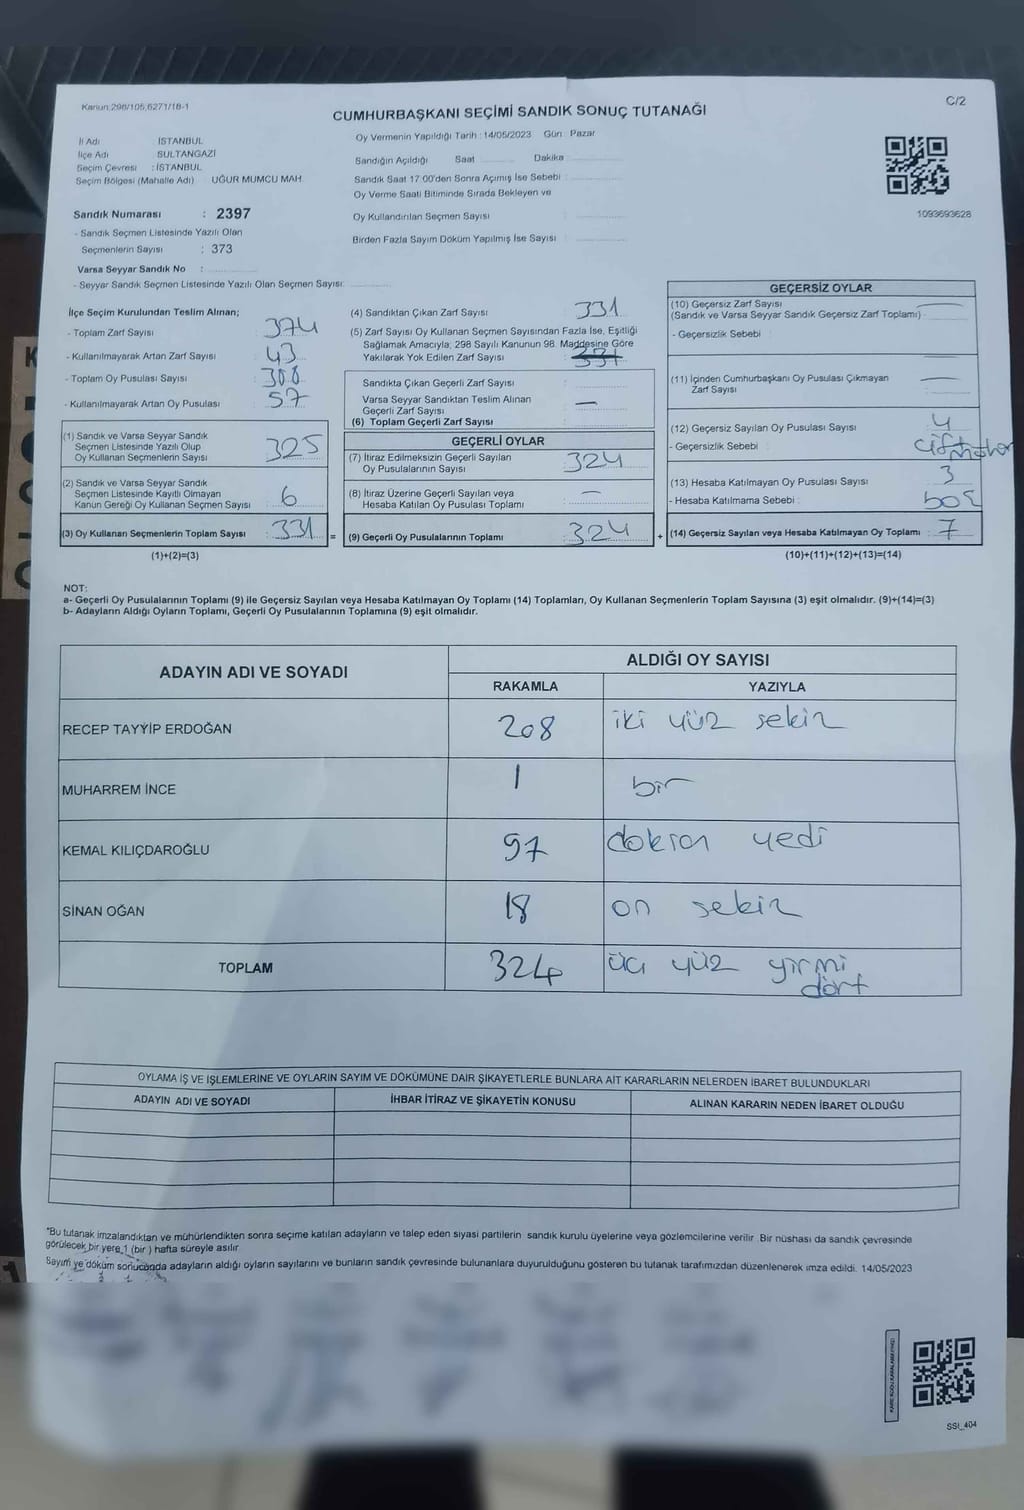 Kanun:298/105,6271/18-1
C/2
CUMHURBAŞKANI SEÇİMİ SANDIK SONUÇ TUTANAĞI
İl Adı İSTANBUL
İlçe Adı SULTANGAZİ
Seçim Çevresi : İSTANBUL
Seçim Bölgesi (Mahalle Adı) UĞUR MUMCU MAH.
Sandık Numarası : 2397
- Sandık Seçmen Listesinde Yazılı Olan
Seçmenlerin Sayısı : 373
Varsa Seyyar Sandık No :
- Seyyar Sandık Seçmen Listesinde Yazılı Olan Seçmen Sayısı:
Oy Vermenin Yapıldığı Tarih : 14/05/2023 Gün : Pazar
Sandığın Açıldığı Saat Dakika
Sandık Saat 17:00'den Sonra Açımış İse Sebebi :
Oy Verme Saati Bitiminde Sırada Bekleyen ve
Oy Kullandırılan Seçmen Sayısı :
Birden Fazla Sayım Döküm Yapılmış İse Sayısı :
1093693628
İlçe Seçim Kurulundan Teslim Alınan;
- Toplam Zarf Sayısı : 374
- Kullanılmayarak Artan Zarf Sayısı : 43
- Toplam Oy Pusulası Sayısı :
- Kullanılmayarak Artan Oy Pusulası : 57
(1) Sandık ve Varsa Seyyar Sandık
Seçmen Listesinde Yazılı Olup
Oy Kullanan Seçmenlerin Sayısı : 325
(2) Sandık ve Varsa Seyyar Sandık
Seçmen Listesinde Kayıtlı Olmayan
Kanun Gereği Oy Kullanan Seçmen Sayısı : 6
(3) Oy Kullanan Seçmenlerin Toplam Sayısı : 331 =
(1)+(2)=(3)
(4) Sandıktan Çıkan Zarf Sayısı : 331
(5) Zarf Sayısı Oy Kullanan Seçmen Sayısından Fazla İse, Eşitliği
Sağlamak Amacıyla, 298 Sayılı Kanunun 98. Maddesine Göre
Yakılarak Yok Edilen Zarf Sayısı : 331
Sandıkta Çıkan Geçerli Zarf Sayısı :
Varsa Seyyar Sandıktan Teslim Alınan
Geçerli Zarf Sayısı : —
(6) Toplam Geçerli Zarf Sayısı :
GEÇERLİ OYLAR
(7) İtiraz Edilmeksizin Geçerli Sayılan
Oy Pusulalarının Sayısı : 324
(8) İtiraz Üzerine Geçerli Sayılan veya
Hesaba Katılan Oy Pusulası Toplamı : —
(9) Geçerli Oy Pusulalarının Toplamı : 324 +
GEÇERSİZ OYLAR
(10) Geçersiz Zarf Sayısı
(Sandık ve Varsa Seyyar Sandık Geçersiz Zarf Toplamı) : —
- Geçersizlik Sebebi :
(11) İçinden Cumhurbaşkanı Oy Pusulası Çıkmayan
Zarf Sayısı : —
(12) Geçersiz Sayılan Oy Pusulası Sayısı : 4
- Geçersizlik Sebebi : çift
(13) Hesaba Katılmayan Oy Pusulası Sayısı : 3
- Hesaba Katılmama Sebebi : boş
(14) Geçersiz Sayılan veya Hesaba Katılmayan Oy Toplamı : 7
(10)+(11)+(12)+(13)=(14)
NOT:
a- Geçerli Oy Pusulalarının Toplamı (9) ile Geçersiz Sayılan veya Hesaba Katılmayan Oy Toplamı (14) Toplamları, Oy Kullanan Seçmenlerin Toplam Sayısına (3) eşit olmalıdır. (9)+(14)=(3)
b- Adayların Aldığı Oyların Toplamı, Geçerli Oy Pusulalarının Toplamına (9) eşit olmalıdır.
ADAYIN ADI VE SOYADI ALDIĞI OY SAYISI
RAKAMLA YAZIYLA
RECEP TAYYİP ERDOĞAN 208 iki yüz sekiz
MUHARREM İNCE 1 bir
KEMAL KILIÇDAROĞLU 97 doksan yedi
SİNAN OĞAN 18 on sekiz
TOPLAM 324 üç yüz yirmi
dört
OYLAMA İŞ VE İŞLEMLERİNE VE OYLARIN SAYIM VE DÖKÜMÜNE DAİR ŞİKAYETLERLE BUNLARA AİT KARARLARIN NELERDEN İBARET BULUNDUKLARI
ADAYIN ADI VE SOYADI İHBAR İTİRAZ VE ŞİKAYETİN KONUSU ALINAN KARARIN NEDEN İBARET OLDUĞU
"Bu tutanak imzalandıktan ve mühürlendikten sonra seçime katılan adayların ve talep eden siyasi partilerin sandık kurulu üyelerine veya gözlemcilerine verilir. Bir nüshası da sandık çevresinde
görülecek bir yere 1 (bir ) hafta süreyle asılır.
Sayım ve döküm sonucunda adayların aldığı oyların sayılarını ve bunların sandık çevresinde bulunanlara duyurulduğunu gösteren bu tutanak tarafımızdan düzenlenerek imza edildi. 14/05/2023
SSI_404